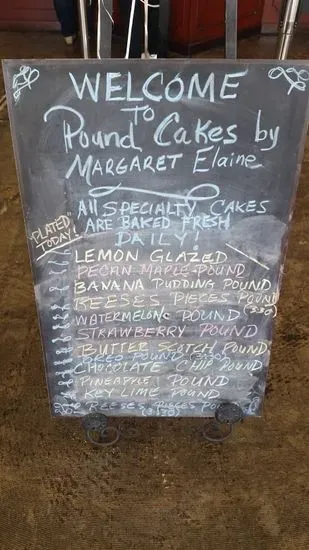 WELCOME
TO
Pound Cakes by
MARGARET Elaine
All SPECIALTY CAKES
ARE BAKED FRESH
DAILY!
PLATED
TODAY!
LEMON GLAZED
PECAN MAPLE POUND
BANANA PUDDING POUND
REESES PIECES POUND
(3:30)
WATERMELON POUND
STRAWBERRY POUND
BUTTER SCOTCH POUND
OREO POUND (3:30)
CHOCOLATE CHIP POUND
PINEAPPLE POUND
KEY LIME POUND
REESES PIECES
(3:30)